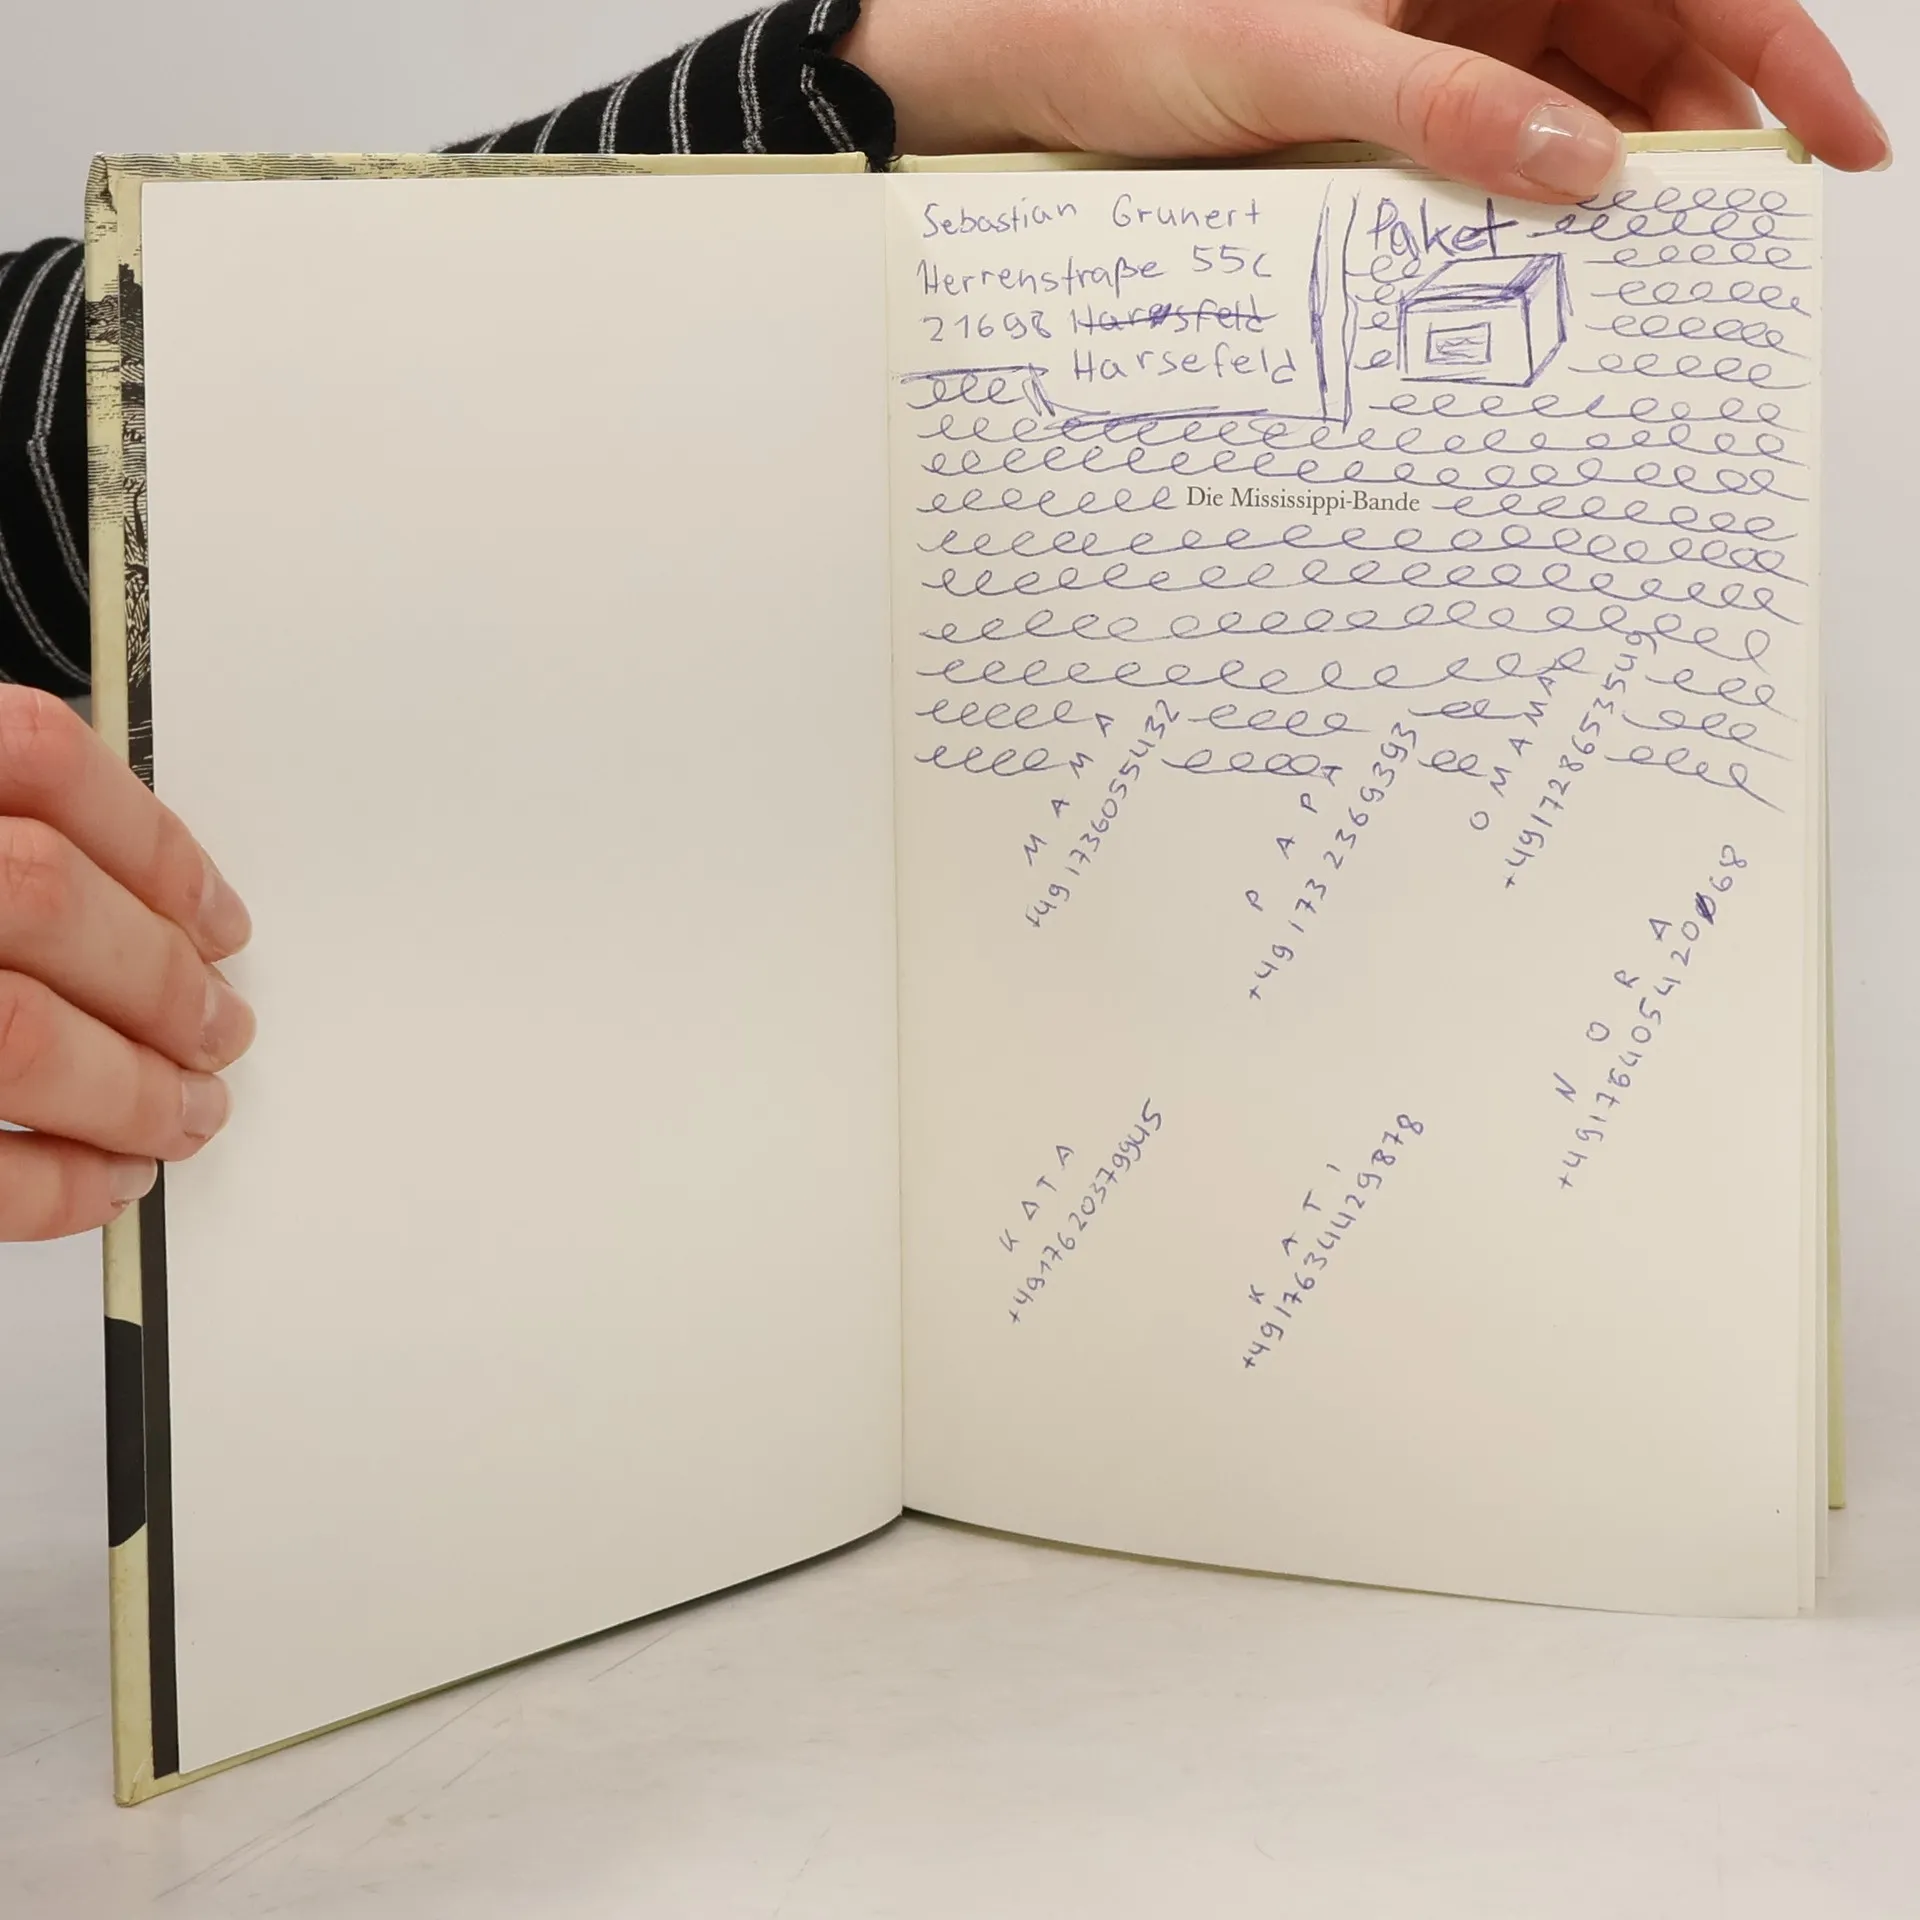 Sebastian Grunert
Herrenstraße 55c
21698 Harsfeld
Harsefeld
Paket
Die Mississippi-Bande
MAMA
+4917360554132
PAPA
+49173 2369393
OMAMA
+4917286535549
NORA
+4917640541420068
KATA
+4917620379945
KATI
+4917634429878